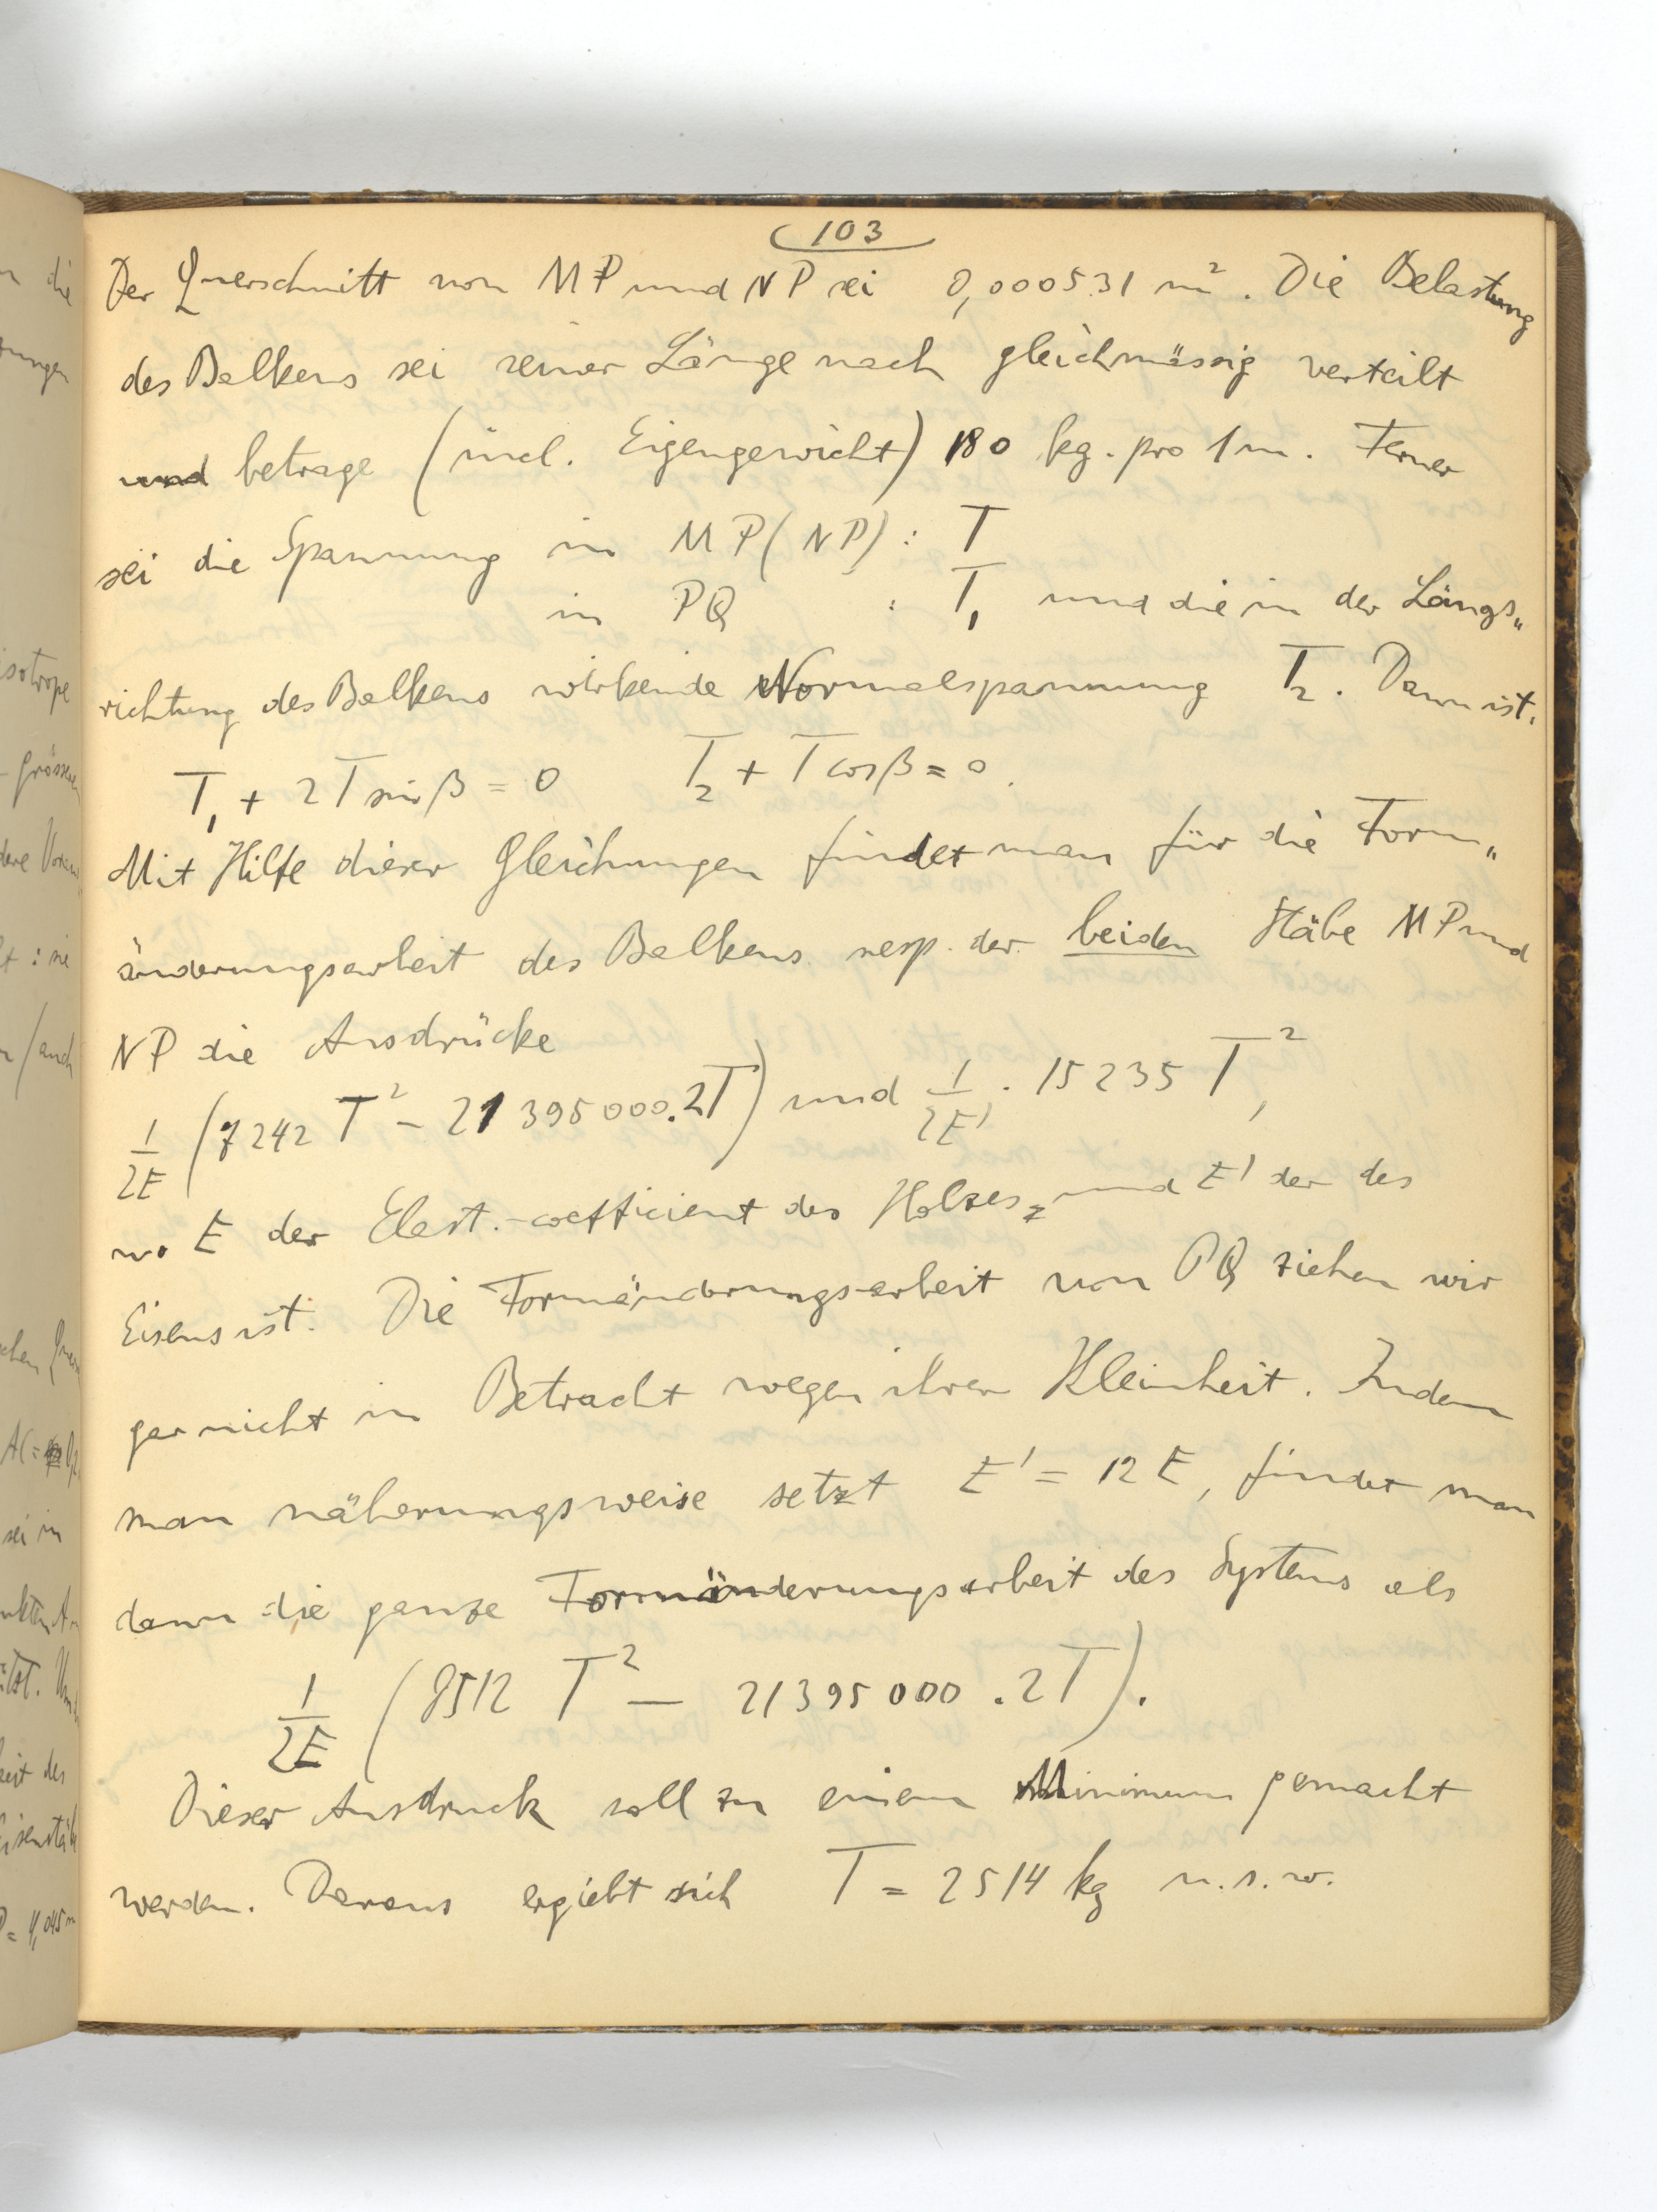 103
Der Querschnitt von MP und NP sei 0,000531 m². Die Belastung
des Balkens sei seiner Länge nach gleichmässig verteilt
und betrage (incl. Eigengewicht) 180 kg. pro 1 m. Ferner
sei die Spannung in MP (NP) : T
in PQ : T₁ und die in der Längs„
richtung des Balkens wirkende Normalspannung T₂. Dann ist:
T₁ + 2T sin β = 0 T₂ + T cos β = 0.
Mit Hilfe dieser Gleichungen findet man für die Form„
änderungsarbeit des Balkens resp. der beiden Stäbe MP und
NP die Ausdrücke
1/2E (7242 T² – 21395000.2T) und 1/2E' . 15235 T²,
wo E der Elast.-coefficient des Holzes, und E' der des
Eisens ist. Die Formänderungsarbeit von PQ ziehen wir
gar nicht in Betracht wegen ihrer Kleinheit. Indem
man näherungsweise setzt E' = 12 E, findet man
dann die ganze Formänderungsarbeit des Systems als
1/2E (8512 T² – 21395000.2T).
Dieser Ausdruck soll zu einem Minimum gemacht
werden. Daraus ergiebt sich T = 2514 kg u.s.w.
n die
ungen
isotrope
grössen
t : sie
n (auch
chen
AC =
sei in
zt.
eit des
P = 4,045 m